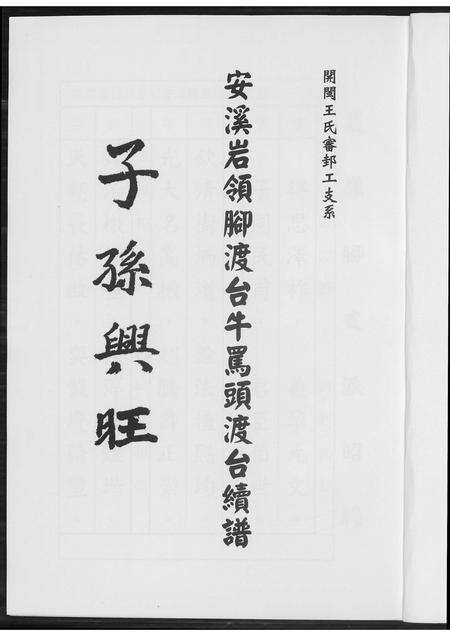 開閩王氏審邽工支系
安溪岩領腳渡台牛罵頭渡台續譜
子孫興旺